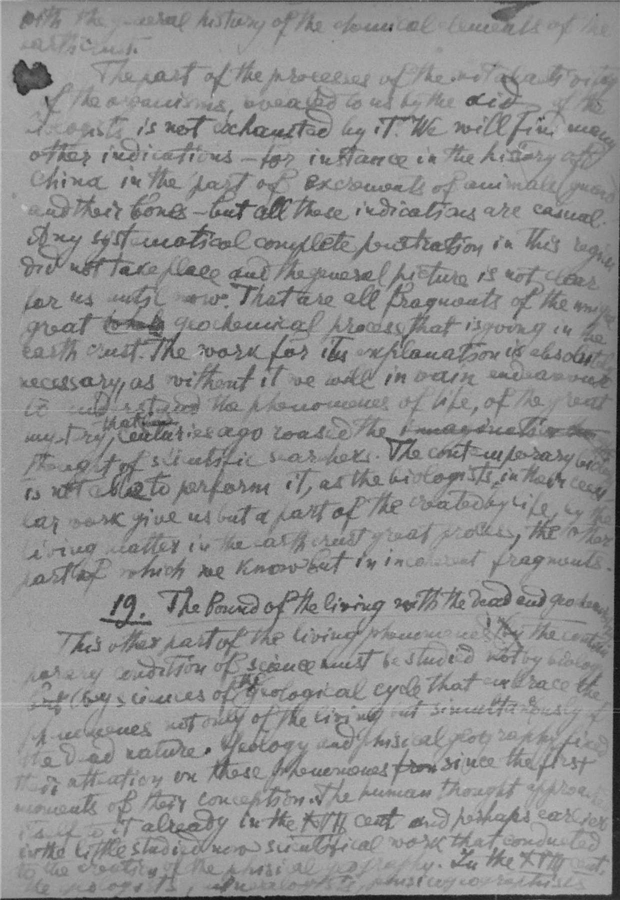 with the general history of the chemical elements of the
earth crust.
The part of the processes of the
of the organisms, revealed to us by the aid of the
biologists is not exhausted by it. We will find many
other indications – for instance in the history of
China in the part of excrements of animals, guano
and their bones – but all these indications are casual.
Any systematical complete penetration in this region
did not take place and the general picture is not clear
for us until now. That are all fragments of the unique
great geochemical process that is going in the
earth crust. The work for its explanation is absolutely
necessary, as without it we will in vain endeavour
to understand the phenomenes of life, of the great
mystery, that centuries ago roused the imagination
thought of scientific searchers. The contemporary biology
is not able to perform it, as the biologists, in their
work give us but a part of the created by life, by the
living matter in the earth crust great process, the other
part of which we know but in incoherent fragments.
19. The Bound of the living with the dead and geochemistry
This other part of the living phenomenes by the contem
porary condition of science must be studied not by biology
but by sciences of the geological cycle that embrace the
phenomenes not only of the living but simultaneously of
the dead nature. Geology and phisical geography fixed
their attention on these phenomenes from since the first
moments of their conception. The human thought approached
itself to it already in the XVII cent and perhaps earlier
in the little studied now scientifical work that conducted
to the creation of the phisical geography. In the XVIII cent.
the geologists, mineralogists, phisicogeographists